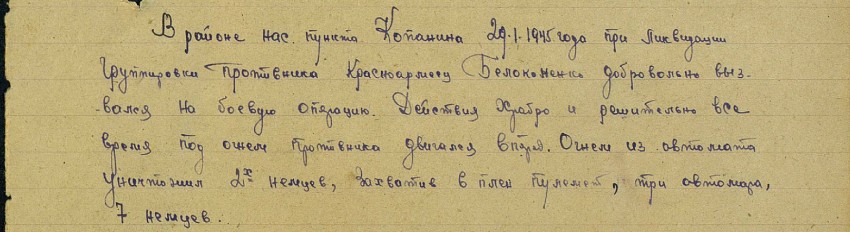 В районе нас. пункта Копанина 29.1.1945 года при ликвидации
группировки противника Красноармеец Белоконенко добровольно выз-
-вался на боевую операцию. Действия храбро и решительно все
время под огнем противника двигался вперед. Огнем из автомата
уничтожил 2х немцев, захватив в плен пулемет, три автомата,
7 немцев.